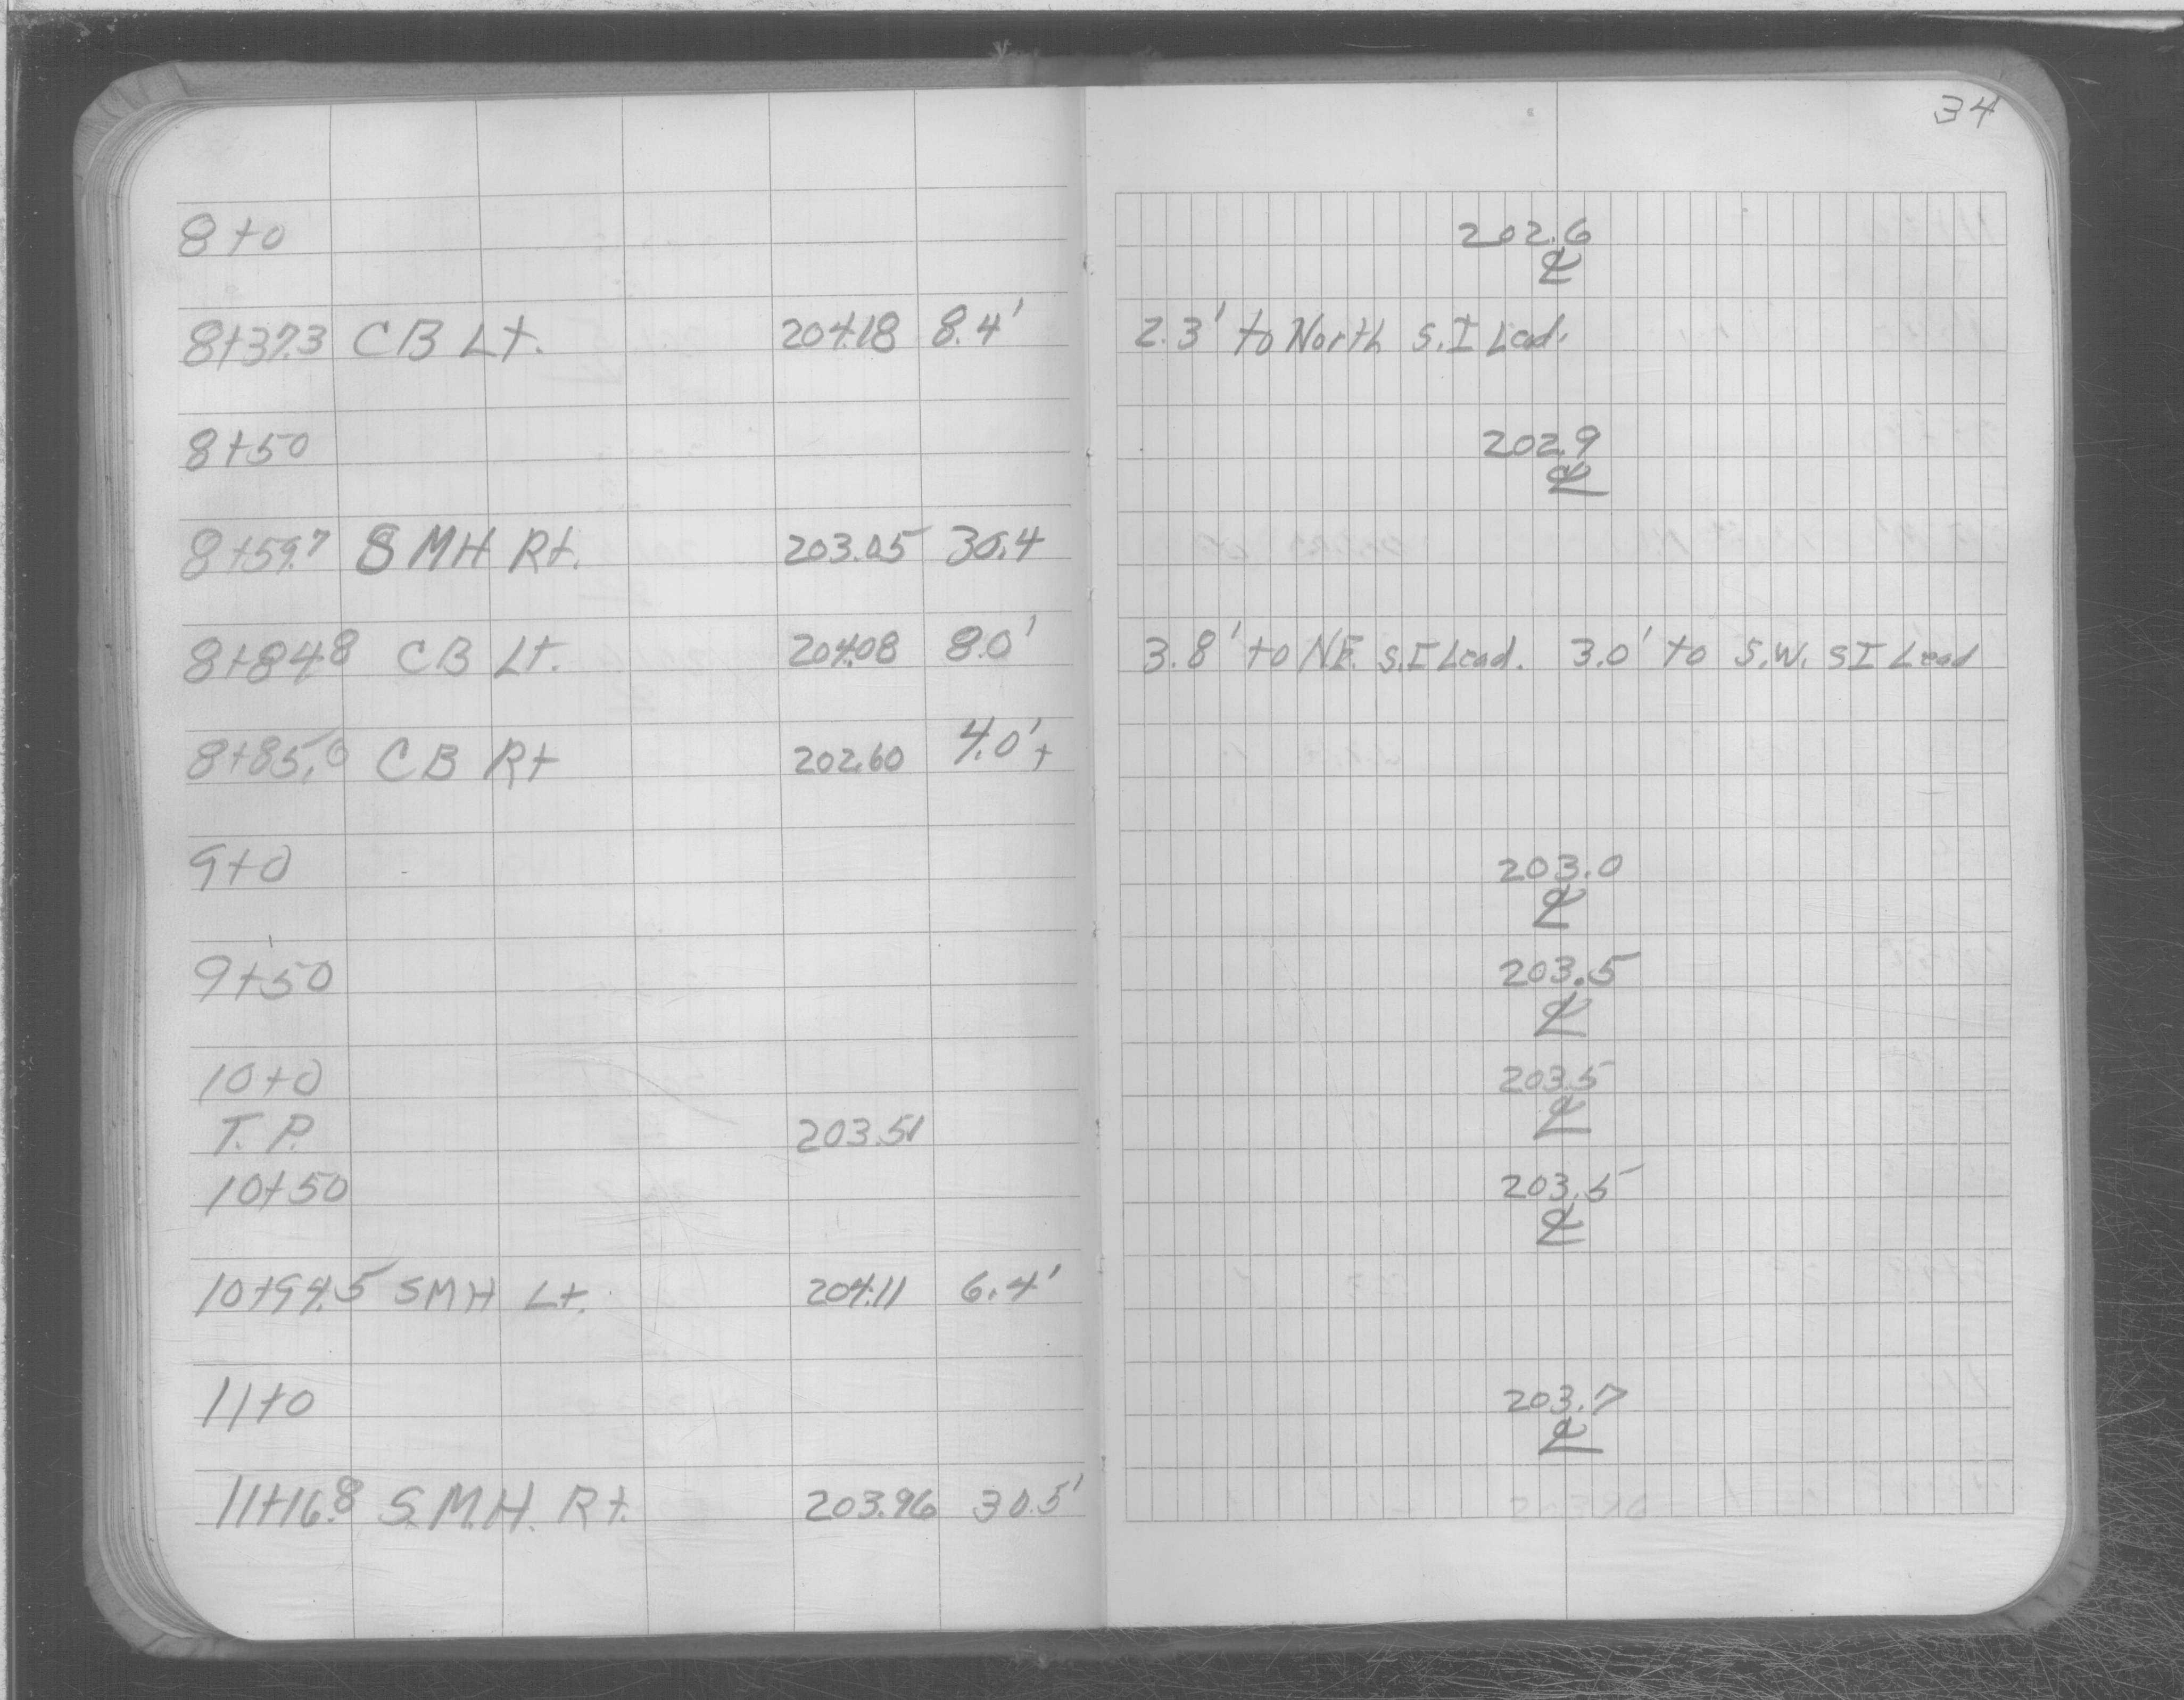 34
8+0 202.6
℄
8+37.3 CB Lt. 204.18 8.4' 2.3' to North S.I Lead.
8+50 202.9
℄
8+59.7 SMH Rt. 203.05 30.4
8+84.8 CB Lt. 204.08 8.0' 3.8' to NE. S.I Lead. 3.0' to S.W. SI Lead
8+85.0 CB Rt 202.60 4.0'+
9+0 203.0
℄
9+50 203.5
℄
10+0 203.5
℄
T.P. 203.51
10+50 203.5
℄
10+94.5 SMH Lt. 204.11 6.4'
11+0 203.7
℄
11+16.8 S.M.H. Rt. 203.96 30.5'